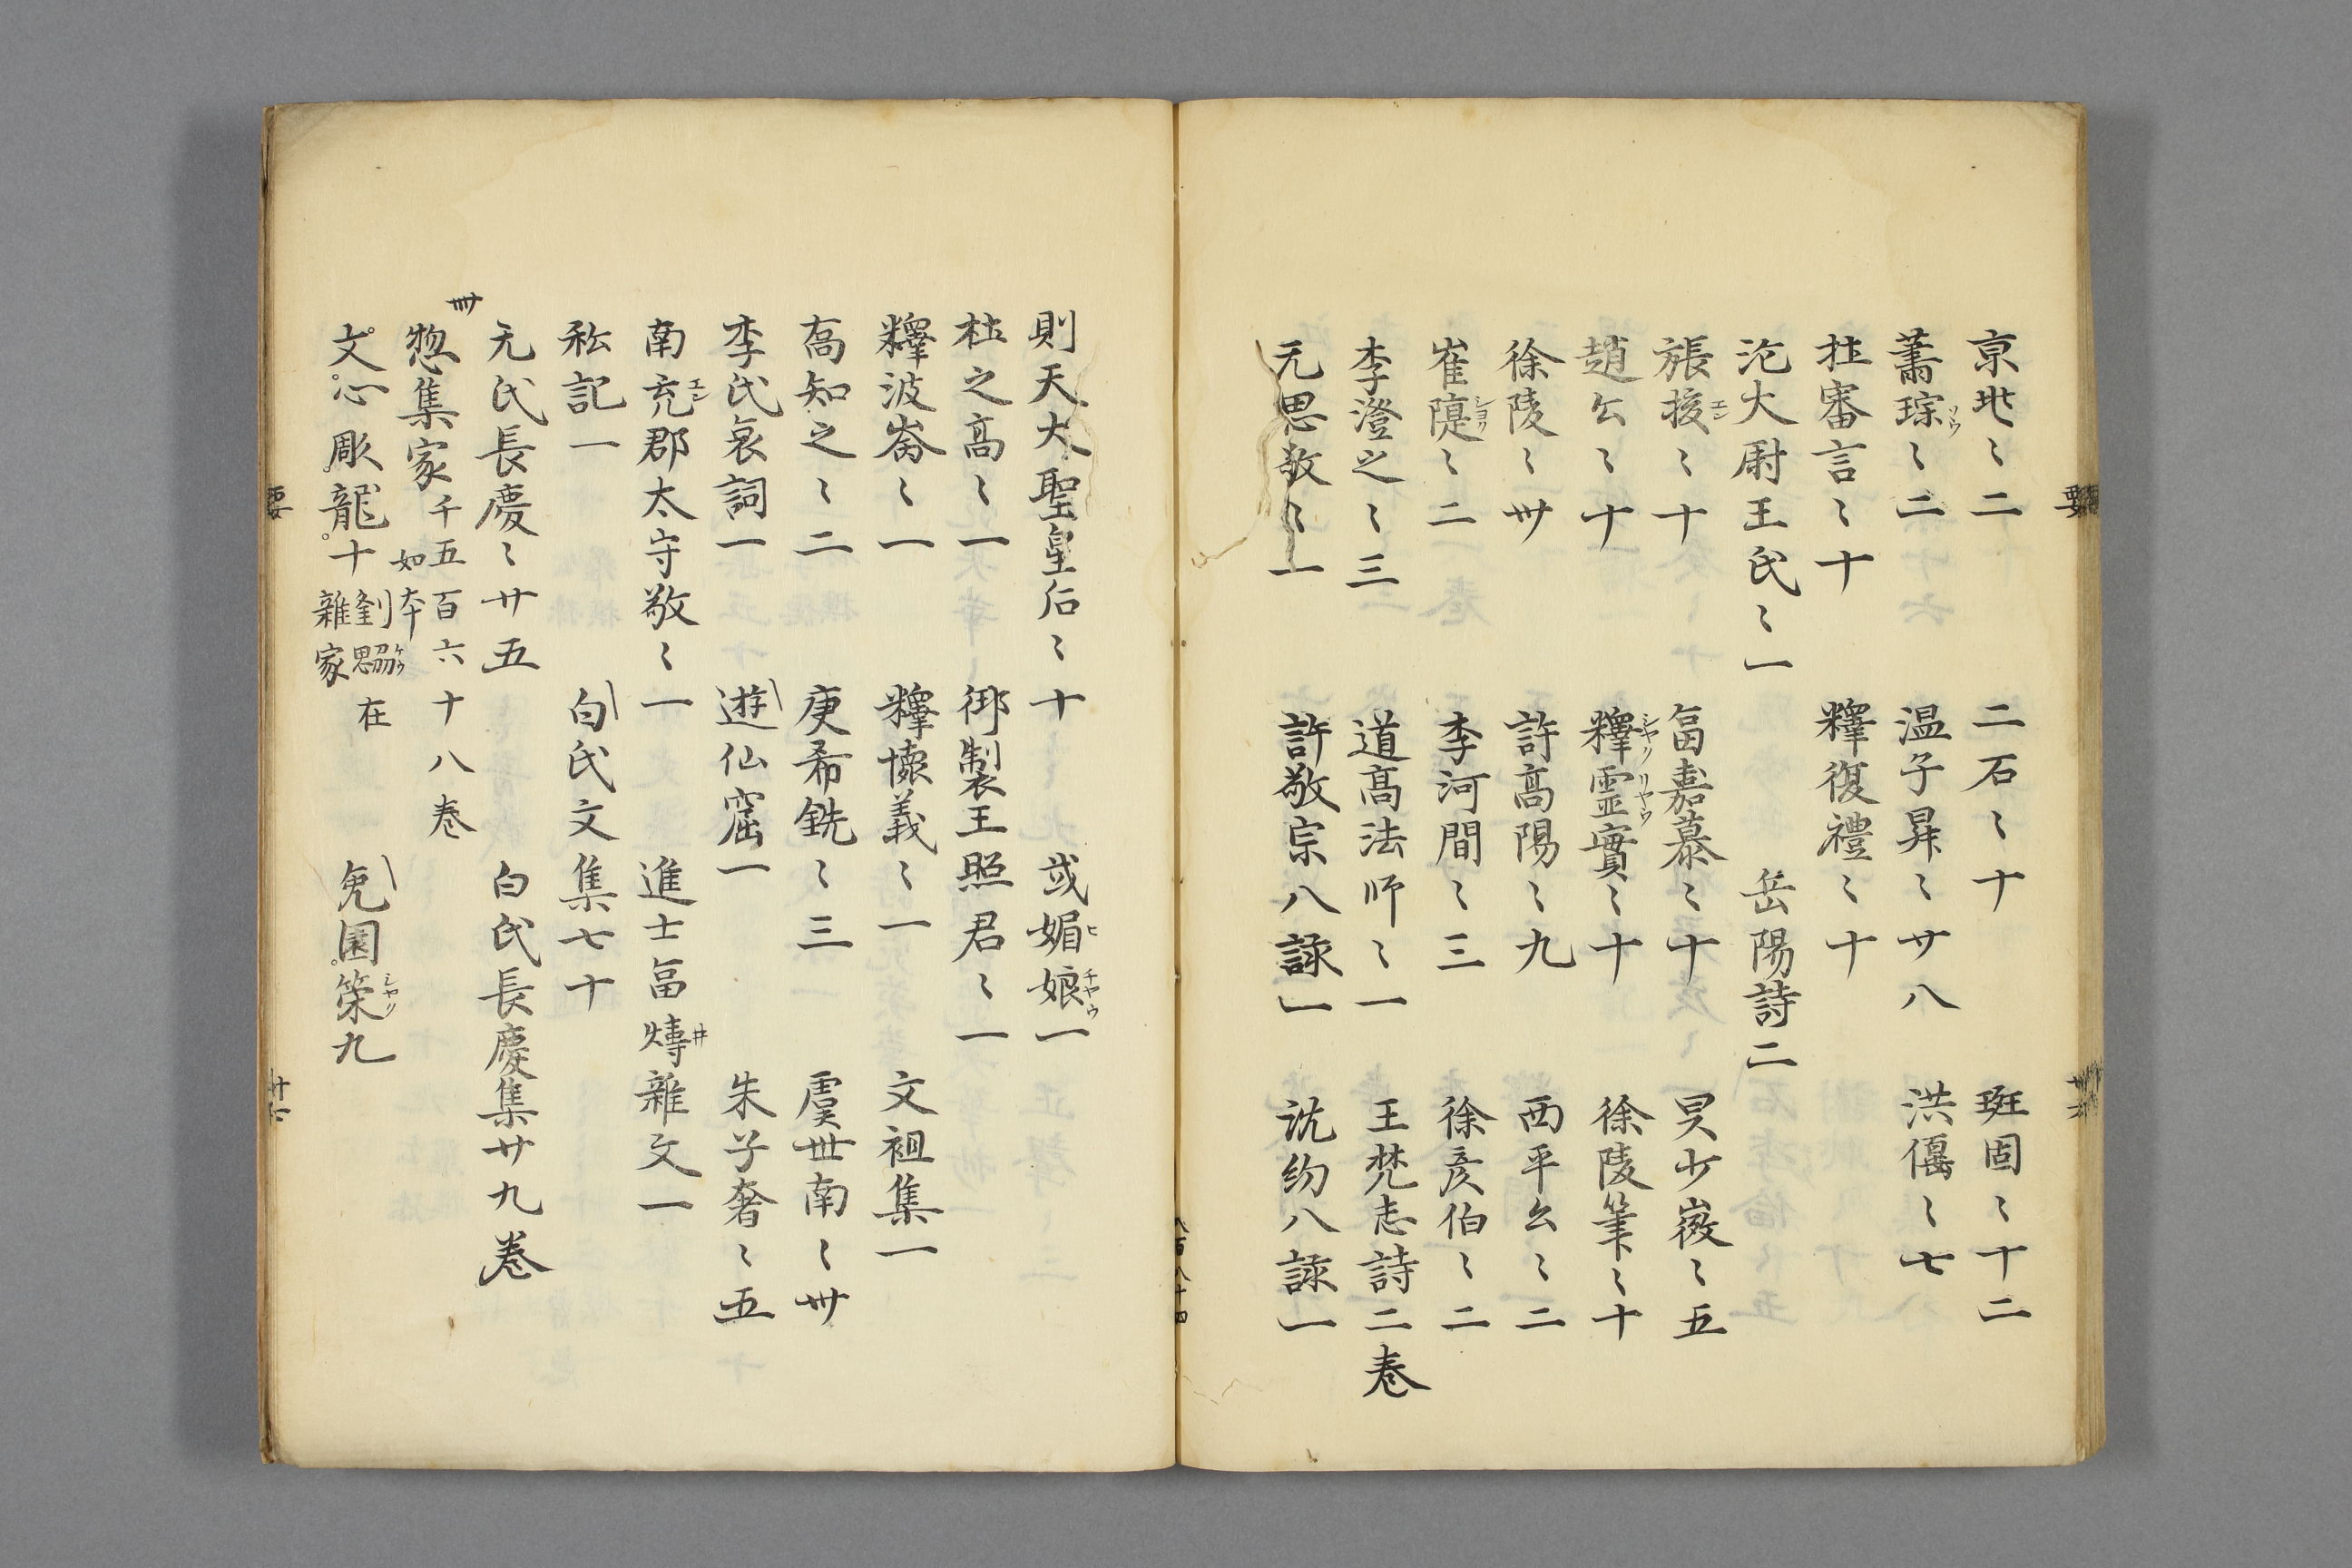 京兆〻二　二石〻十　班固〻十二
蕭琮〻二　温子昇〻廿八　洪偃〻七
杜審言〻十　釋復禮〻十
沱大尉王氏〻一　岳陽詩二
張援〻十　富嘉慕〻十　吳少微〻五
趙公〻十　釋霊實〻十　徐陵筆〻十
徐陵〻卅　許高陽〻九　西平公〻二
崔〻二　李河間〻三　徐彦伯〻二
李澄之〻三　道高法師〻一　王梵志詩二巻
元思敬〻一　許敬宗八詠一　沈約八詠一
則天大聖皇后〻十　或媚娘一
杜之高〻一　御製王照君〻一
釋波崙〻一　釋懐義〻一　文祖集一
高知之〻二　庚希銑〻三　虞世南〻卅
李氏哀詞一　遊仙窟一　朱子奢〻五
南兗郡太守敬〻一　進士富雜文一
私記一　白氏文集七十
元氏長慶〻廿五　白氏長慶集廿九巻
卌
惣集家千五百六十八巻
如本
文心彫龍十　劉思勰　在
雜家　兔園策九
ソウ
エン
シヤク リヤウ
ヒ チヤウ
エン
ヰ
ケウ
シヤク
要
要
六百八十四